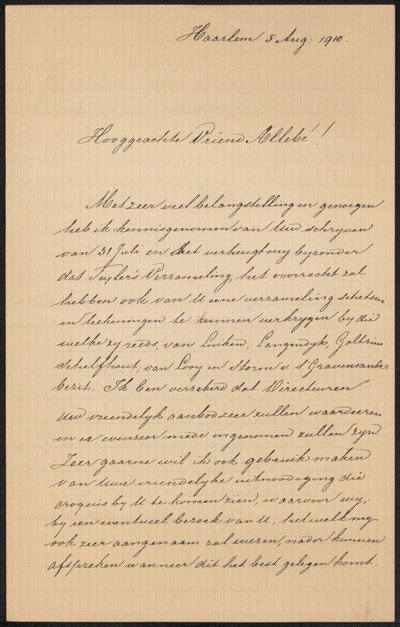 Haarlem 5 Aug. 1910.
Hooggeachte Vriend Allebé!
Met zeer veel belangstelling en genoegen
heb ik kennisgenomen van Uw schryven
van 31 Juli en het verheugt my byzonder
dat Teyler's Verzameling, het voorrecht zal
hebben ook van U eene verzameling schetsen
en teekeningen te kunnen verkrygen by die
welke zy reeds, van Luiken, Langendyk, Goltzius
Schelfhout, van Looy en Storm v. 's Gravensande
bezit. Ik ben verzekerd dat Directeuren
Uw vriendelyk aanbod zeer zullen waardeeren
en er evenzeer mede ingenomen zullen zyn.
Zeer gaarne wil ik ook gebruik maken
van Uwe vriendelyke uitnoodiging die
croquis by U te komen zien, waarvoor wy,
by een eventueel bezoek van U, hetwelk my
ook zeer aangenaam zal wezen, nader kunnen
afspreken wanneer dit het best gelegen komt.